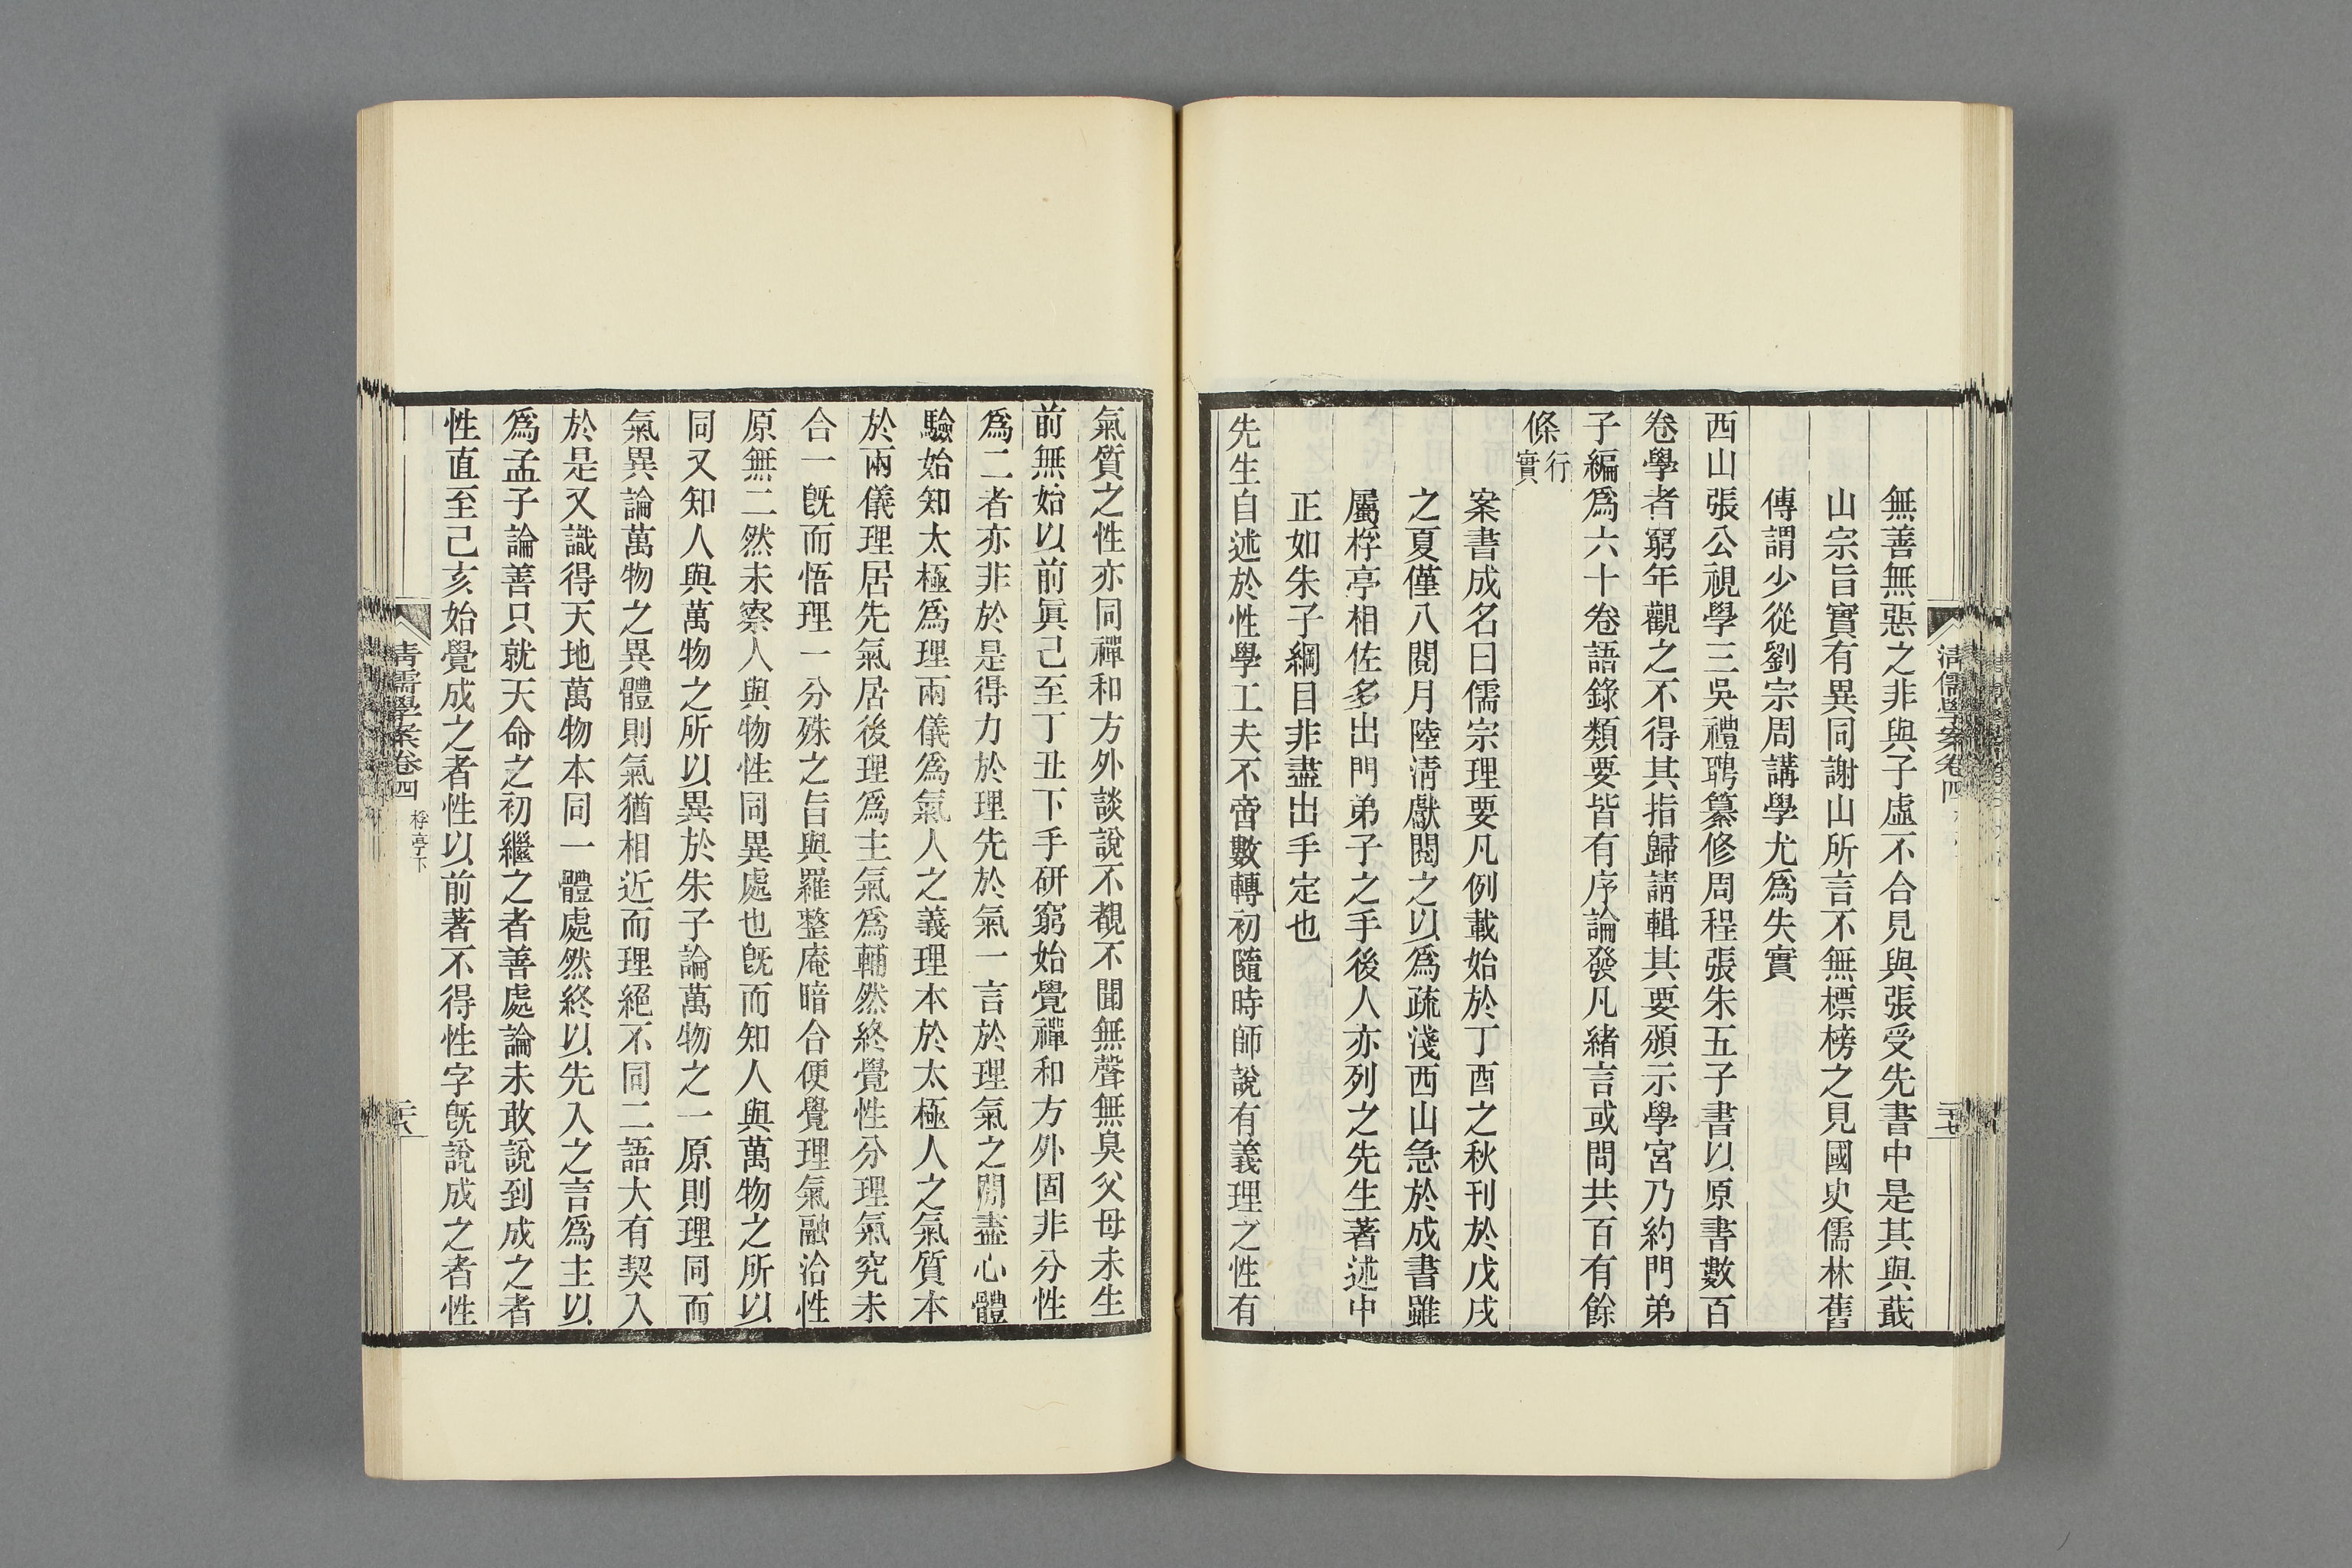 無善無惡之非與子虛不合見與張受先書中是其與蕺
山宗旨實有異同謝山所言不無標榜之見國史儒林舊
傳謂少從劉宗周講學尤爲失實
西山張公視學三吳禮聘纂修周程張朱五子書以原書數百
卷學者窮年觀之不得其指歸請輯其要頒示學宮乃約門弟
子編爲六十卷語錄類要皆有序論發凡緒言或問共百有餘
條行
實
案書成名曰儒宗理要凡例載始於丁酉之秋刊於戊戌
之夏僅八閱月陸淸獻閱之以爲疏淺西山急於成書雖
屬桴亭相佐多出門弟子之手後人亦列之先生著述中
正如朱子綱目非盡出手定也
先生自述於性學工夫不啻數轉初隨時師說有義理之性有
淸儒學案卷四
二十七
氣質之性亦同禪和方外談說不覩不聞無聲無臭父母未生
前無始以前眞己至丁丑下手研窮始覺禪和方外固非分性
爲二者亦非於是得力於理先於氣一言於理氣之閒盡心體
驗始知太極爲理兩儀爲氣人之義理本於太極人之氣質本
於兩儀理居先氣居後理爲主氣爲輔然終覺性分理氣究未
合一旣而悟理一分殊之旨與羅整庵暗合便覺理氣融洽性
原無二然未察人與物性同異處也旣而知人與萬物之所以
同又知人與萬物之所以異於朱子論萬物之一原則理同而
氣異論萬物之異體則氣猶相近而理絕不同二語大有契入
於是又識得天地萬物本同一體處然終以先入之言爲主以
爲孟子論善只就天命之初繼之者善處論未敢說到成之者
性直至己亥始覺成之者性以前著不得性字旣說成之者性
淸儒學案卷四
桴亭下
二十八